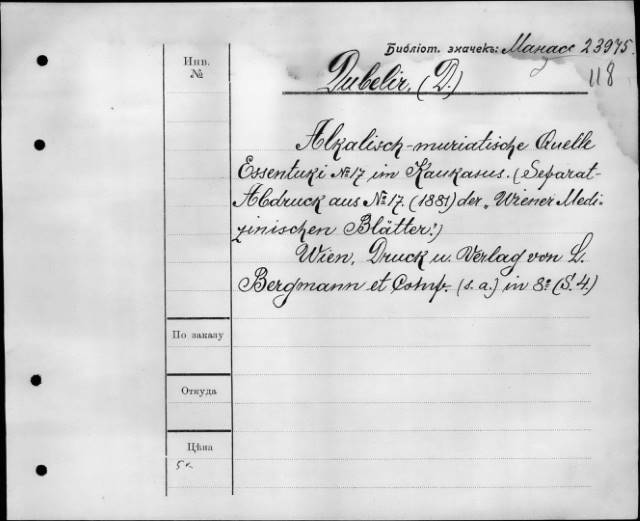 Библіот. значекъ: Манасс 23975.
118
Инв.
№
Dubelir, (D.)
Alkalisch-muriatische Quelle
Essentuki № 17 im Kaukasus. (Separat-
Abdruck aus № 17. (1881) der „Wiener Medi-
zinischen Blätter.")
Wien, Druck u. Verlag von L.
Bergmann et Comp. (s. a.) in 8º (S. 4.)
По заказу
Откуда
Цѣна
5 к.